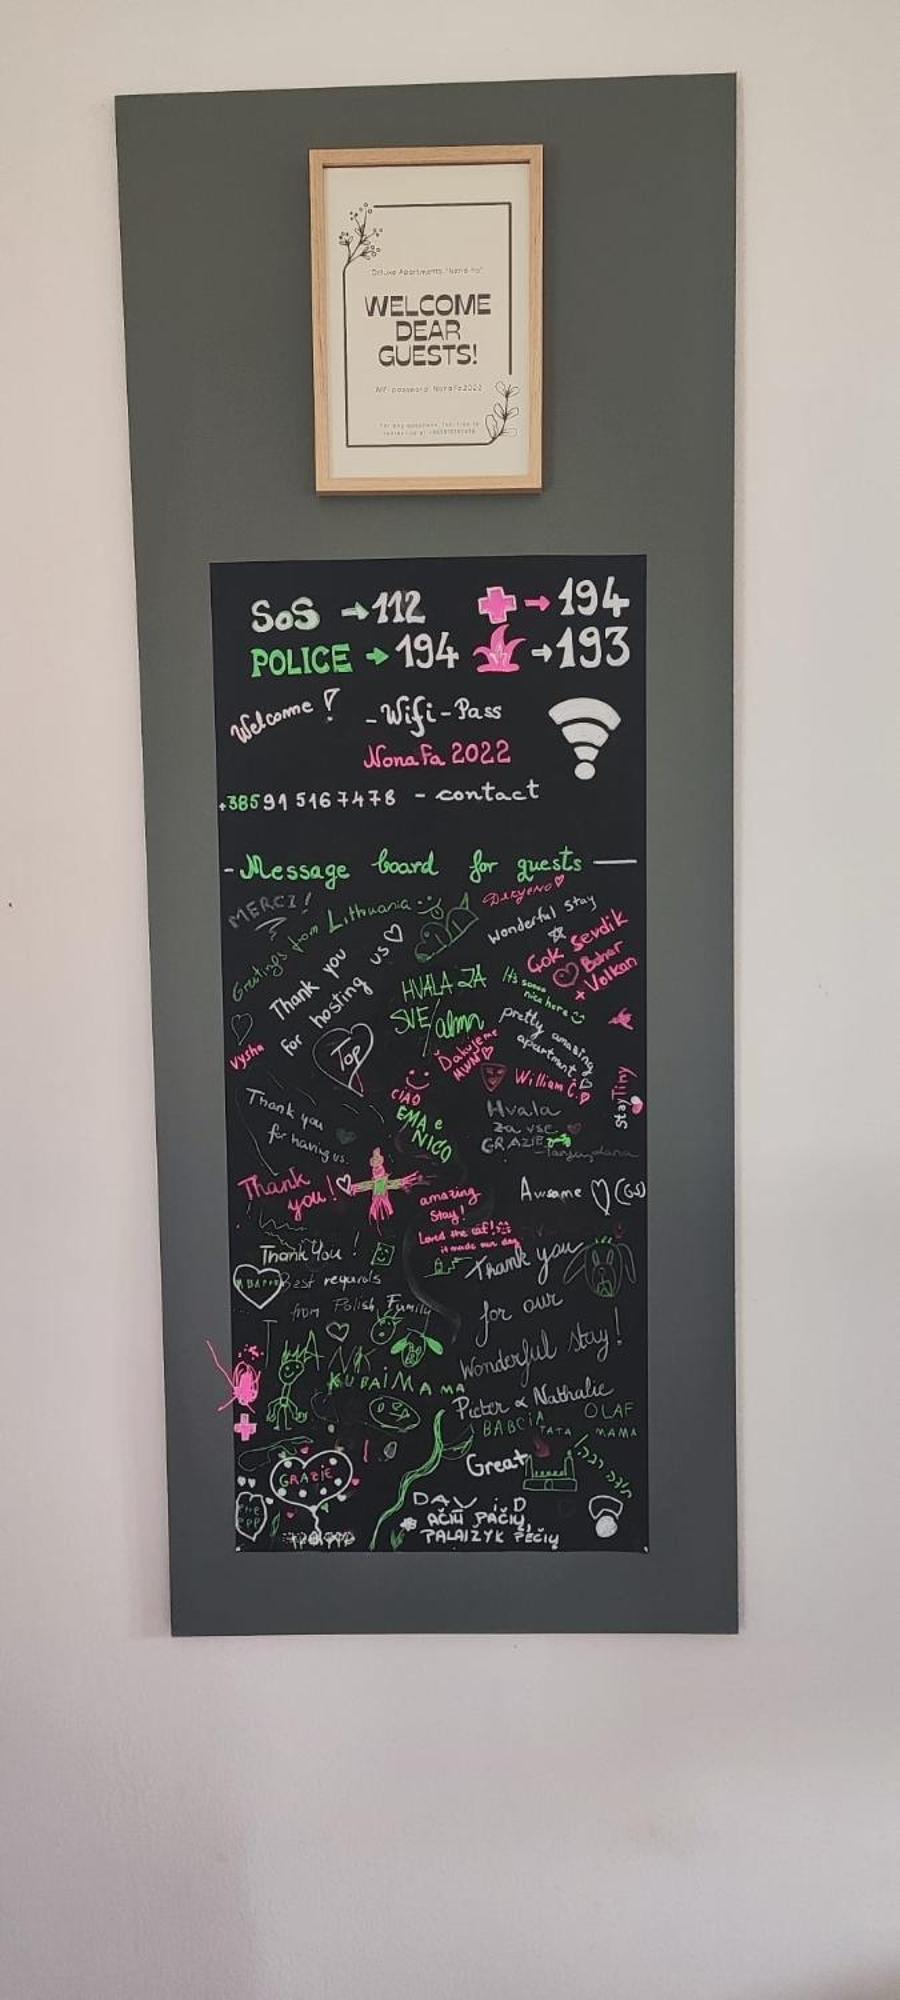 Deluxe Apartments "Nona Fa"
WELCOME
DEAR
GUESTS!
WiFi password: NonaFa2022
For any questions, feel free to
SOS → 112
→ 194
POLICE → 194
→ 193
Welcome!
- Wifi - Pass
NonaFa 2022
+385 91 516 7478 - contact
- Message board for guests
MERCI!
Greetings from Lithuania
Wonderful stay
Çok sevdik
Bahar
+ Volkan
Thank you
for hosting us
HVALA ZA
SVE
It's soooo
nice here
pretty amazing
apartment
Vysha
Top
Ďakujeme
MWM
William C.
CIAO
EMA e
NICO
StayTiny
Thank you
for having us.
Hvala
za vse
GRAZIE
Thank
you!
amazing
Stay!
Loved the cat!
it made our day
Awsome (GS)
Thank You!
Best regards
from Polish Family
Thank you
for our
Wonderful stay!
Pieter & Nathalie
KUBA i MAMA
BABCIA
TATA
OLAF
MAMA
Great
GRAZIE
DAViD
AČIŪ PAČIŲ
PALAIZYK PEČIŲ